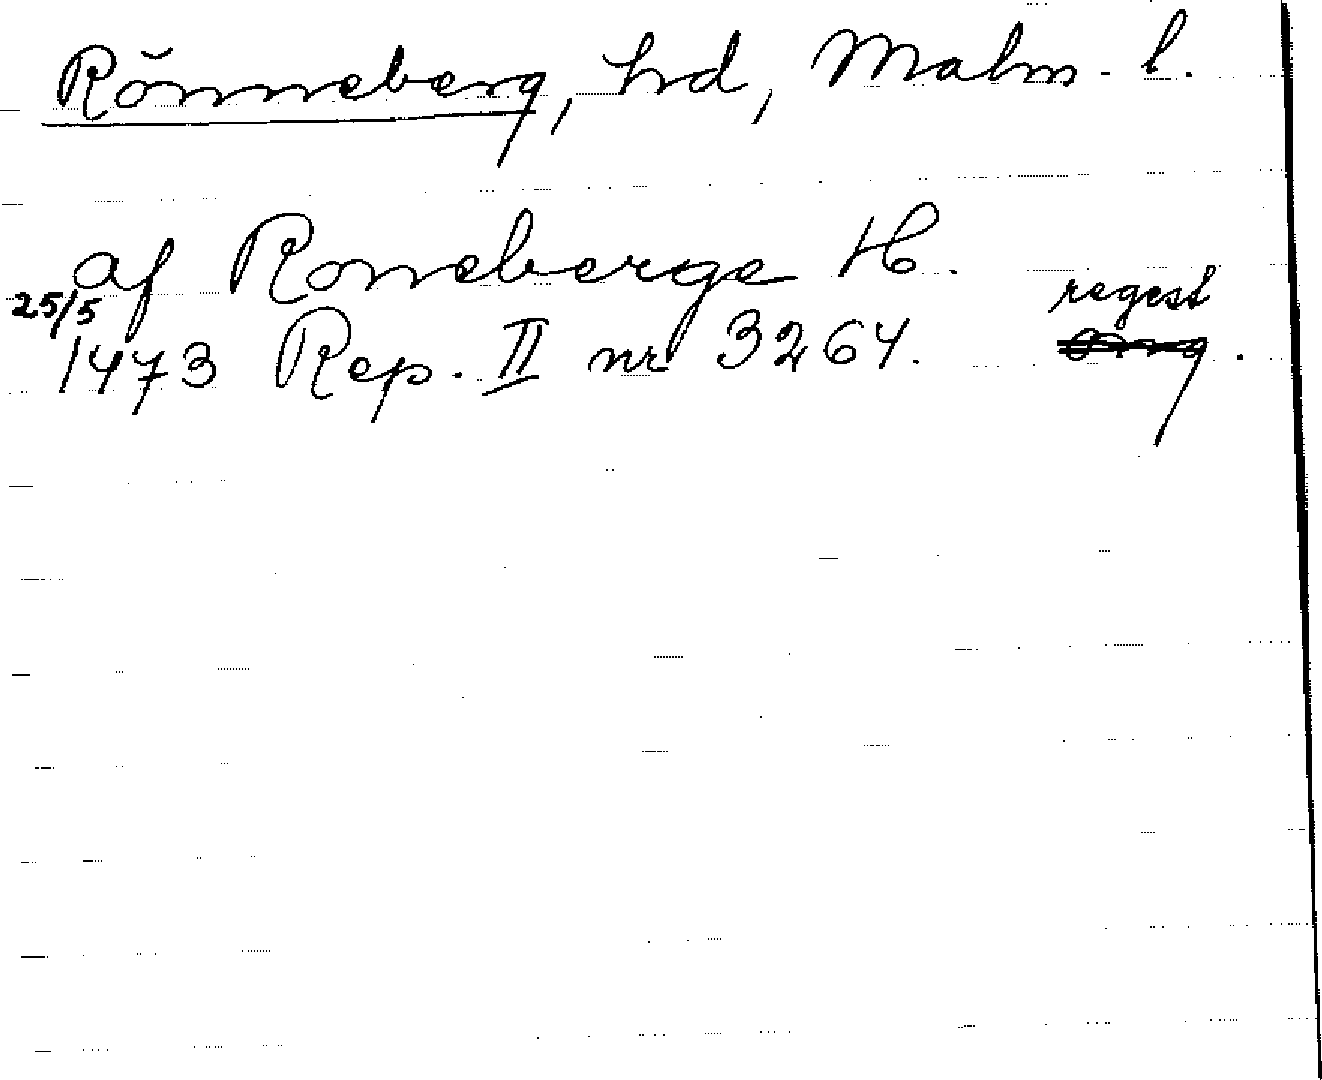 Rönneberg, hd, Malm. l.
af Roneberge H.
25/5 regest
1473 Rep. II nr 3264.